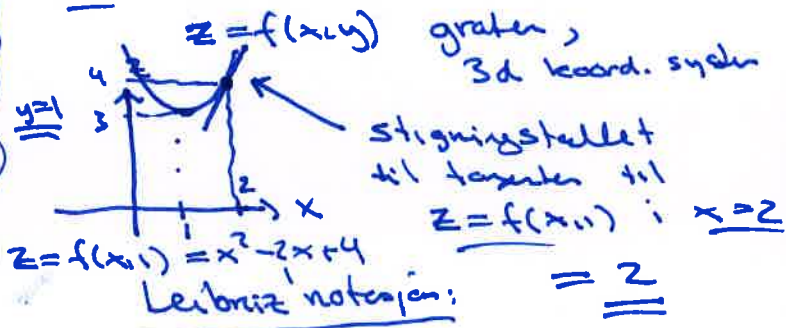 z = f(x,y) grafen,
3d koord. system
z
4
y=1
3
stigningstallet
til tangenten til
z = f(x,1) i x = 2
= 2
2
x
1
z = f(x,1) = x² - 2x + 4
Leibniz' notasjon: